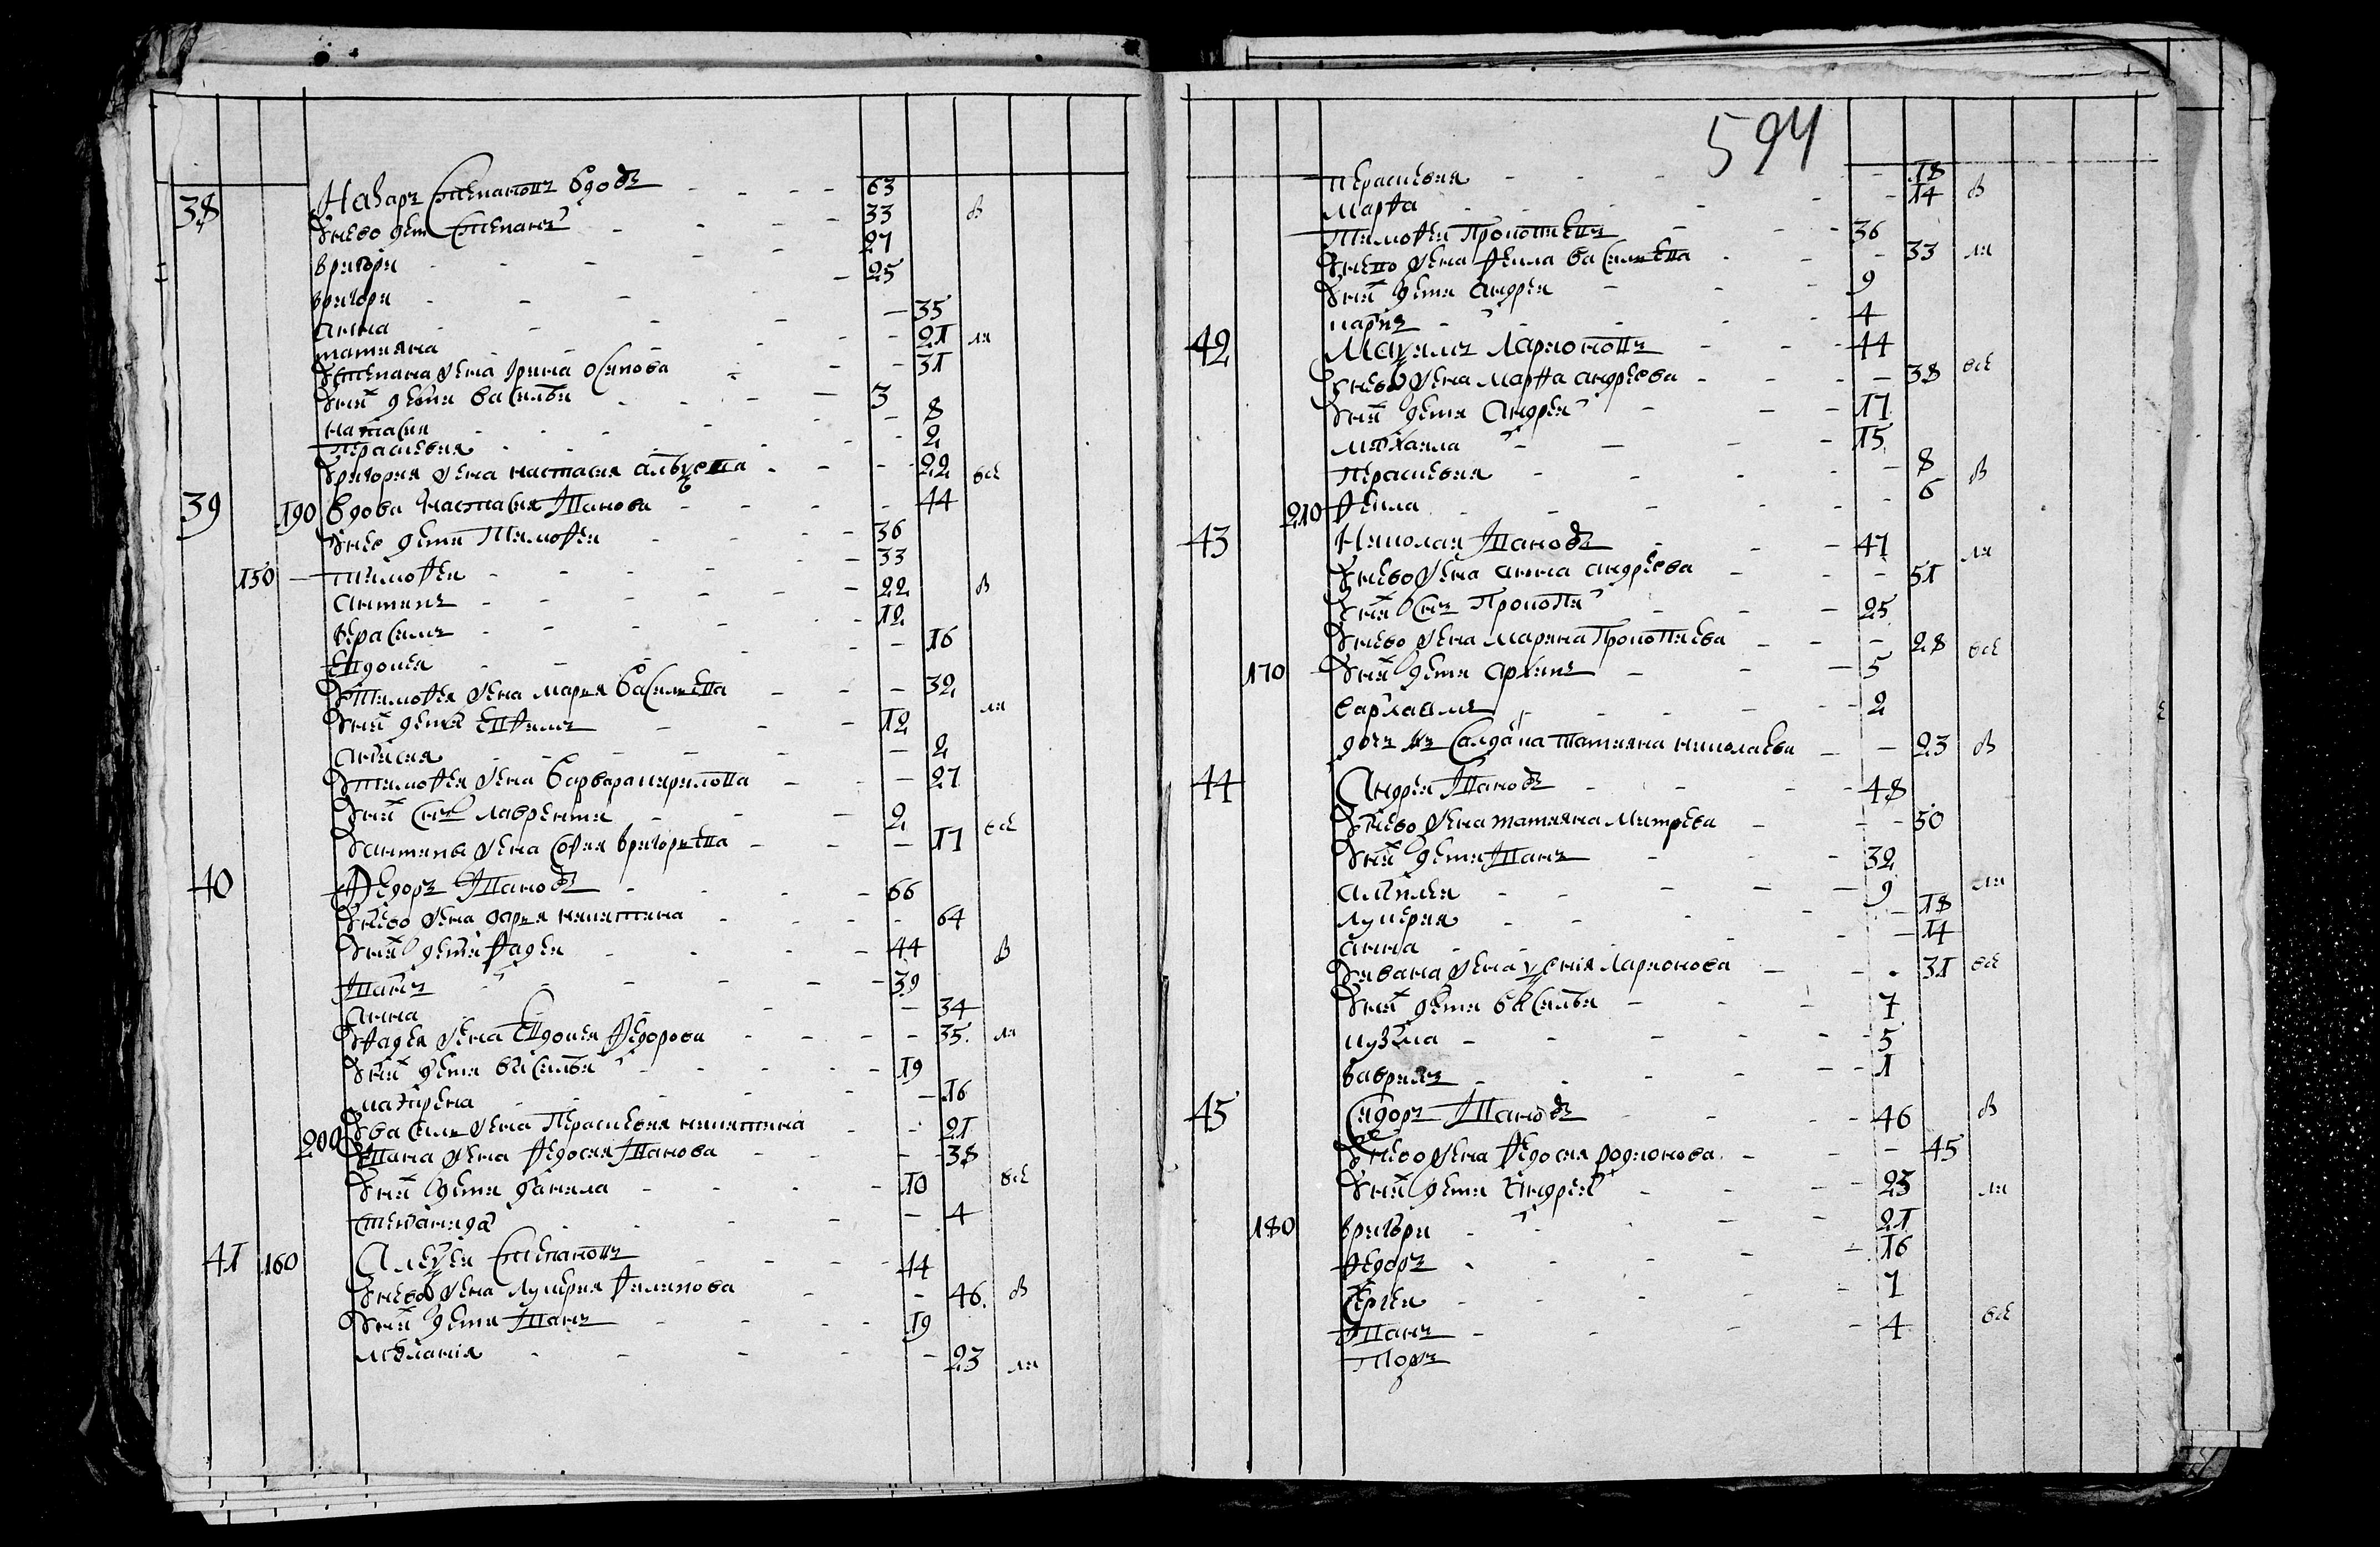 38 Назаръ Степановъ вдовъ - - - - 63
У нево дети Степанъ - - - - 33 в
Григори - - - - 27
Григори - - - - 25
Анна - - - - 35
татияна - - - - 21 ли
У Степана жена Ирина Осипова - - 31
У них дети Василеи - - - 3
наталия - - - - 8
Парасковия - - - - 2
У Григория жена настасия алексеева - - - 22 всѣ
39 190 Вдова Настасия Иванова - - - - 44
У нее дети Тимофеи - - - - 36
150 Тимофеи - - - - 33
Антипъ - - - - 22 в
Герасимъ - - - - 12
Евдокея - - - - 16
У Тимофея жена Маря Василева - - - 32
У них дети Ефимъ - - - - 12 ли
Анисия - - - - 2
У Тимофея жена Варвара кирилова - - - 27
У них снъ Лаврентеи - - - 2
У антипы жена Софя Григорева - - - 17 всѣ
40 Федоръ Ивановъ - - - - 66
У нево жена Даря никитина - - - 64
У них дети Фадеи - - - - 44 в
Иванъ - - - - 39
Анна - - - - 34
У Фадея жена Евдокея Федорова - - - 35 ли
У них дети Василеи - - - - 19
матрена - - - - 16
У Василя жена Парасковия никитина - - 21
200 У Ивана жена Федосия Иванова - - - 38
У них дети Данила - - - - 10 всѣ
Степанида - - - - 4
41 160 Алексеи Степановъ - - - - 44
У нево жена Лукеря Филипова - - 46 в
У них дети Иванъ - - - - 19
Мелания - - - - 23 ли
594
Парасковия - - - - 18
Марфа - - - - 14 в
Тимофеи Прокопевъ - - - 36
У нево жена Фекла Василева - - - 33 ли
У них дети Андреи - - - 9
карпъ - - - - 4
42 Максимъ Ларионовъ - - - 44
У нево жена Марфа андреева - - - 38 всѣ
У них дети Андреи - - - 17
михаила - - - - 15
Парасковия - - - - 8 в
210 Фекла - - - - 6
43 Николаи Ивановъ - - - 47
У нево жена анна андреева - - 51 ли
У них снъ Прокопеи - - - 25
У нево жена Марина Прокопиева - - - 28 всѣ
170 У них дети Архипъ - - - 5
Варлаамъ - - - - 2
дочь из Салдатка Татияна николаева - - 23 в
44 Андреи Ивановъ - - - - 48
У нево жена татияна Митрева - - - 50
У них дети Иванъ - - - 32
- - - - 9 ли
Лукеря - - - - 18
анна - - - - 14
У ивана жена Ксения Ларионова - - - 31 всѣ
У них дети Василеи - - - 7
кузма - - - - 5
Гаврилъ - - - - 1
45 Сидоръ Ивановъ - - - 46 в
У нево жена Федосия родионова - - - 45
У них дети Андреи - - - 23 ли
180 Григори - - - - 21
Федоръ - - - - 16
Сергеи - - - - 7
Иванъ - - - - 4 всѣ